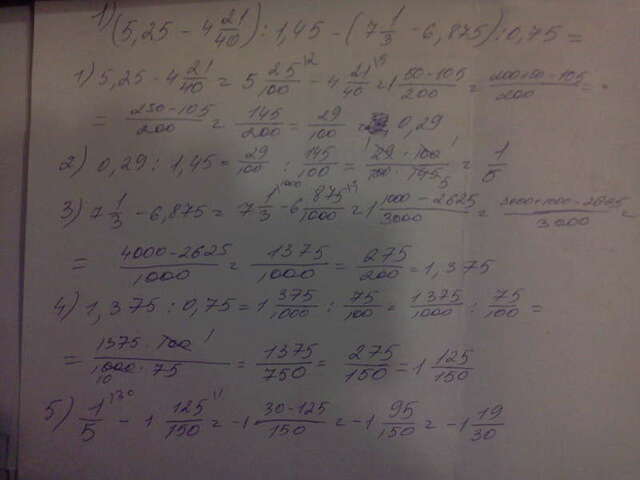 1) (5,25 - 4 21/40) : 1,45 - (7 1/3 - 6,875) : 0,75 =
1) 5,25 - 4 21/40 = 5 25/100 - 4 21/40 = 1 50-105/200 = 200+50-105/200 =
= 250-105/200 = 145/200 = 29/100 = 0,29
2) 0,29 : 1,45 = 29/100 : 145/100 = 29·100/100·145 = 1/5
3) 7 1/3 - 6,875 = 7 1/3 - 6 875/1000 = 1 1000-2625/3000 = 3000+1000-2625/3000 =
= 4000-2625/1000 = 1375/1000 = 275/200 = 1,375
4) 1,375 : 0,75 = 1 375/1000 : 75/100 = 1375/1000 : 75/100 =
= 1375·100/1000·75 = 1375/750 = 275/150 = 1 125/150
5) 1/5 - 1 125/150 = -1 30-125/150 = -1 95/150 = -1 19/30